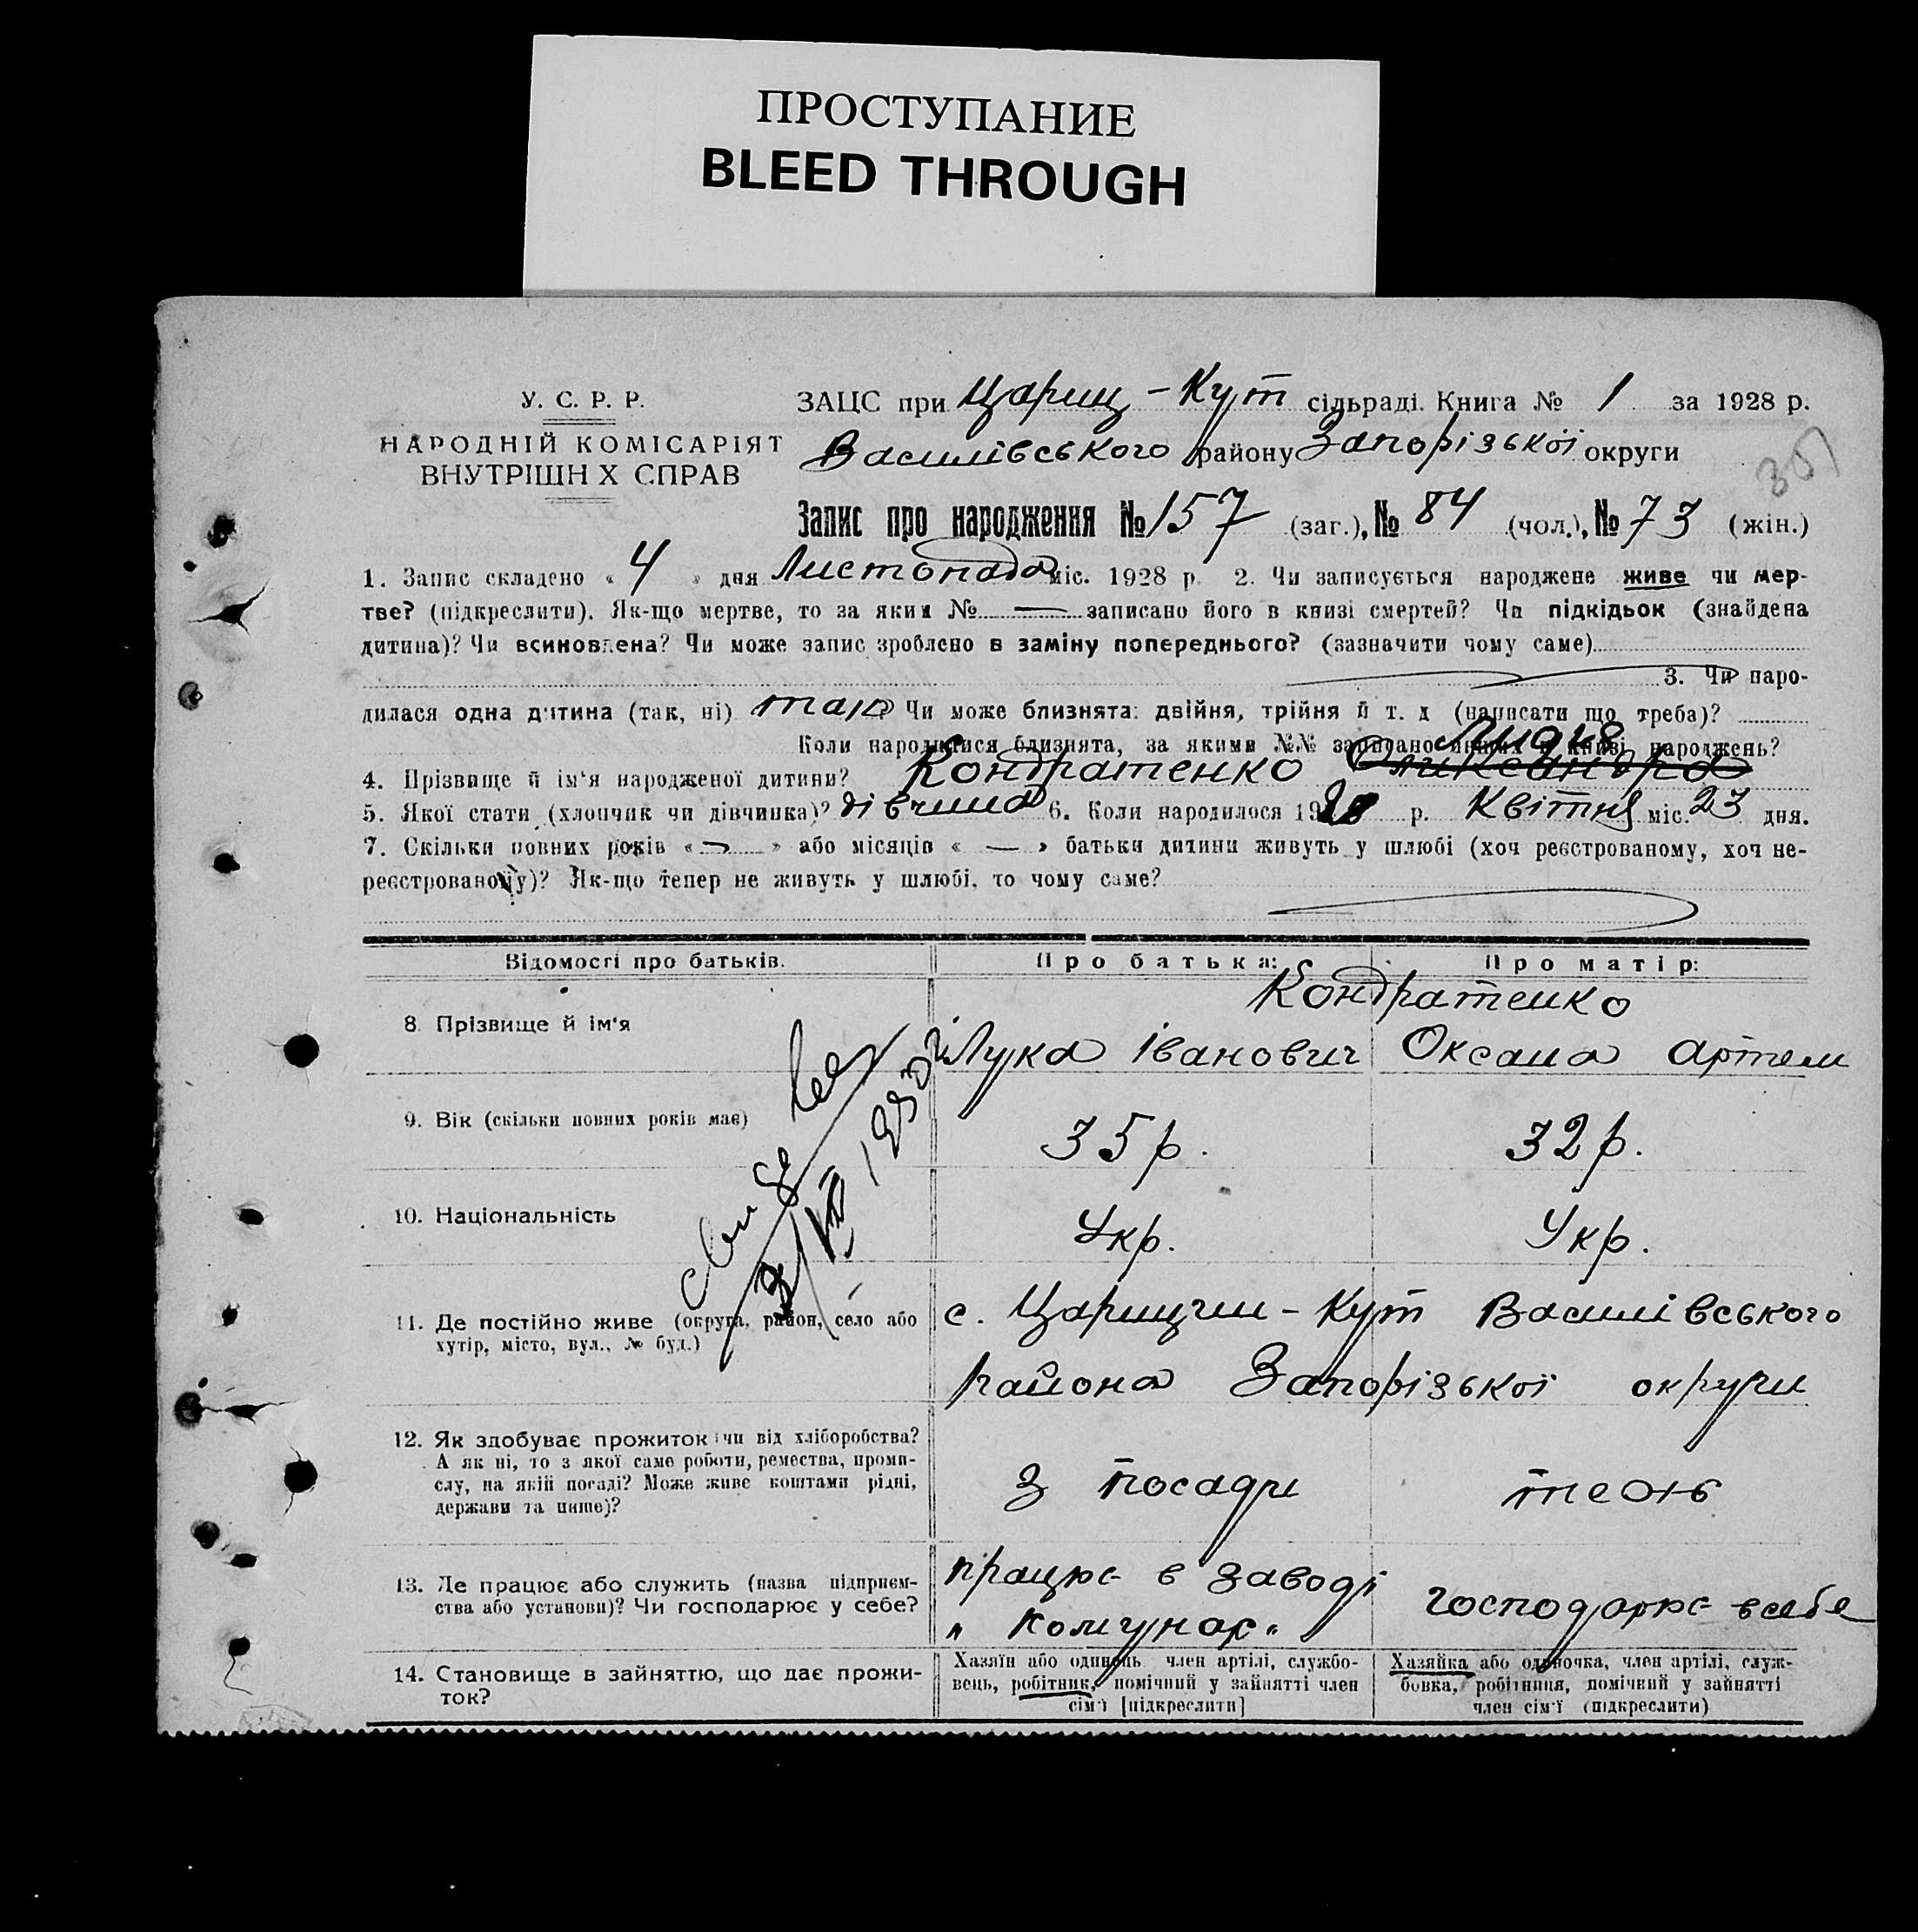 ПРОСТУПАНИЕ
BLEED THROUGH
У. С. Р. Р.
НАРОДНІЙ КОМІСАРІЯТ
ВНУТРІШН Х СПРАВ
ЗАЦС при Царищ - Кут сільраді. Книга № 1 за 1928 р.
Василівського району Запорізької округи
Запис про народження № 157 (заг.), № 84 (чол.), № 73 (жін.)
1. Запис складено « 4 » дня Листопада міс. 1928 р. 2. Чи записується народжене живе чи мер-
тве? (підкреслити). Як-що мертве, то за яким № — записано його в книзі смертей? Чи підкідьок (знайдена
дитина)? Чи всиновлена? Чи може запис зроблено в заміну попереднього? (зазначити чому саме)
3. Чи наро-
дилася одна дитина (так, ні) так Чи може близнята: двійня, трійня й т. д (написати що треба)?
Коли народилися близнята, за якими №№ записано инших в книзі народжень?
Лидия
4. Прізвище й ім'я народженої дитини? Кондратенко Олександра
5. Якої стати (хлопчик чи дівчинка)? дівчина 6. Коли народилося 1928 р. Квітня міс. 23 дня.
7. Скільки повних років « — » або місяців « — » батьки дитини живуть у шлюбі (хоч реєстрованому, хоч не-
реєстрованому)? Як-що тепер не живуть у шлюбі, то чому саме?
Відомості про батьків.
Про батька:
Про матір:
8. Прізвище й ім'я
Кондратенко
Лука Іванович
Оксана Артем
9. Вік (скільки повних років має)
35 р.
32 р.
10. Національність
Укр.
Укр.
11. Де постійно живе (округа, район, село або
хутір, місто, вул., № буд.)
с. Царицин - Кут Василівського
района Запорізької округи
12. Як здобуває прожиток чи від хліборобства?
А як ні, то з якої саме роботи, ремества, проми-
слу, на якій посаді? Може живе коштами рідні,
держави та инше)?
З посади
теож
13. Де працює або служить (назва підприєм-
ства або установи)? Чи господарює у себе?
працює в заводі
„ Комунар "
господарює в себе
14. Становище в зайняттю, що дає прожи-
ток?
Хазяїн або одинець член артілі, службо-
вець, робітник, помічний у зайнятті член
сім'ї [підкреслити]
Хазяйка або одиночка, член артілі, служ-
бовка, робітниця, помічний у зайнятті
член сім'ї (підкреслити)